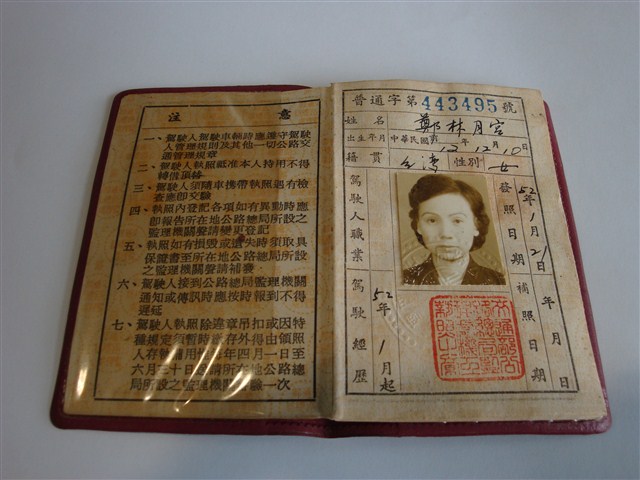 注意
一、駕駛人駕駛車輛時應遵守駕駛
人管理規則及其他一切公路交
通管理規章
二、駕駛人執照祗准本人持用不得
轉借頂替
三、駕駛人須隨車携帶執照遇有檢
查應即交驗
四、執照內登記各項如有異動時應
即報告所在地公路總局所設之
監理機關聲請變更登記
五、執照如有損毀或遺失時須取具
保證書至所在地公路總局所設
之監理機關聲請補發
六、駕駛人接到公路總局監理機關
通知或傳訊時應按時報到不得
遲延
七、駕駛人執照除違章吊扣或因特
種規定須暫時繳存外得由領照
人存執備用
年四月一日至
六月三十日
請所在地公路總
局所設之監理機關
驗一次
普通字第443495號
姓名 鄭林月宮
出生年月 中華民國 12年12月10日
籍貫 台灣 性別 女
發照日期 52年1月21日
補照日期 年月日
駕駛人職業
駕駛經歷 52年1月起